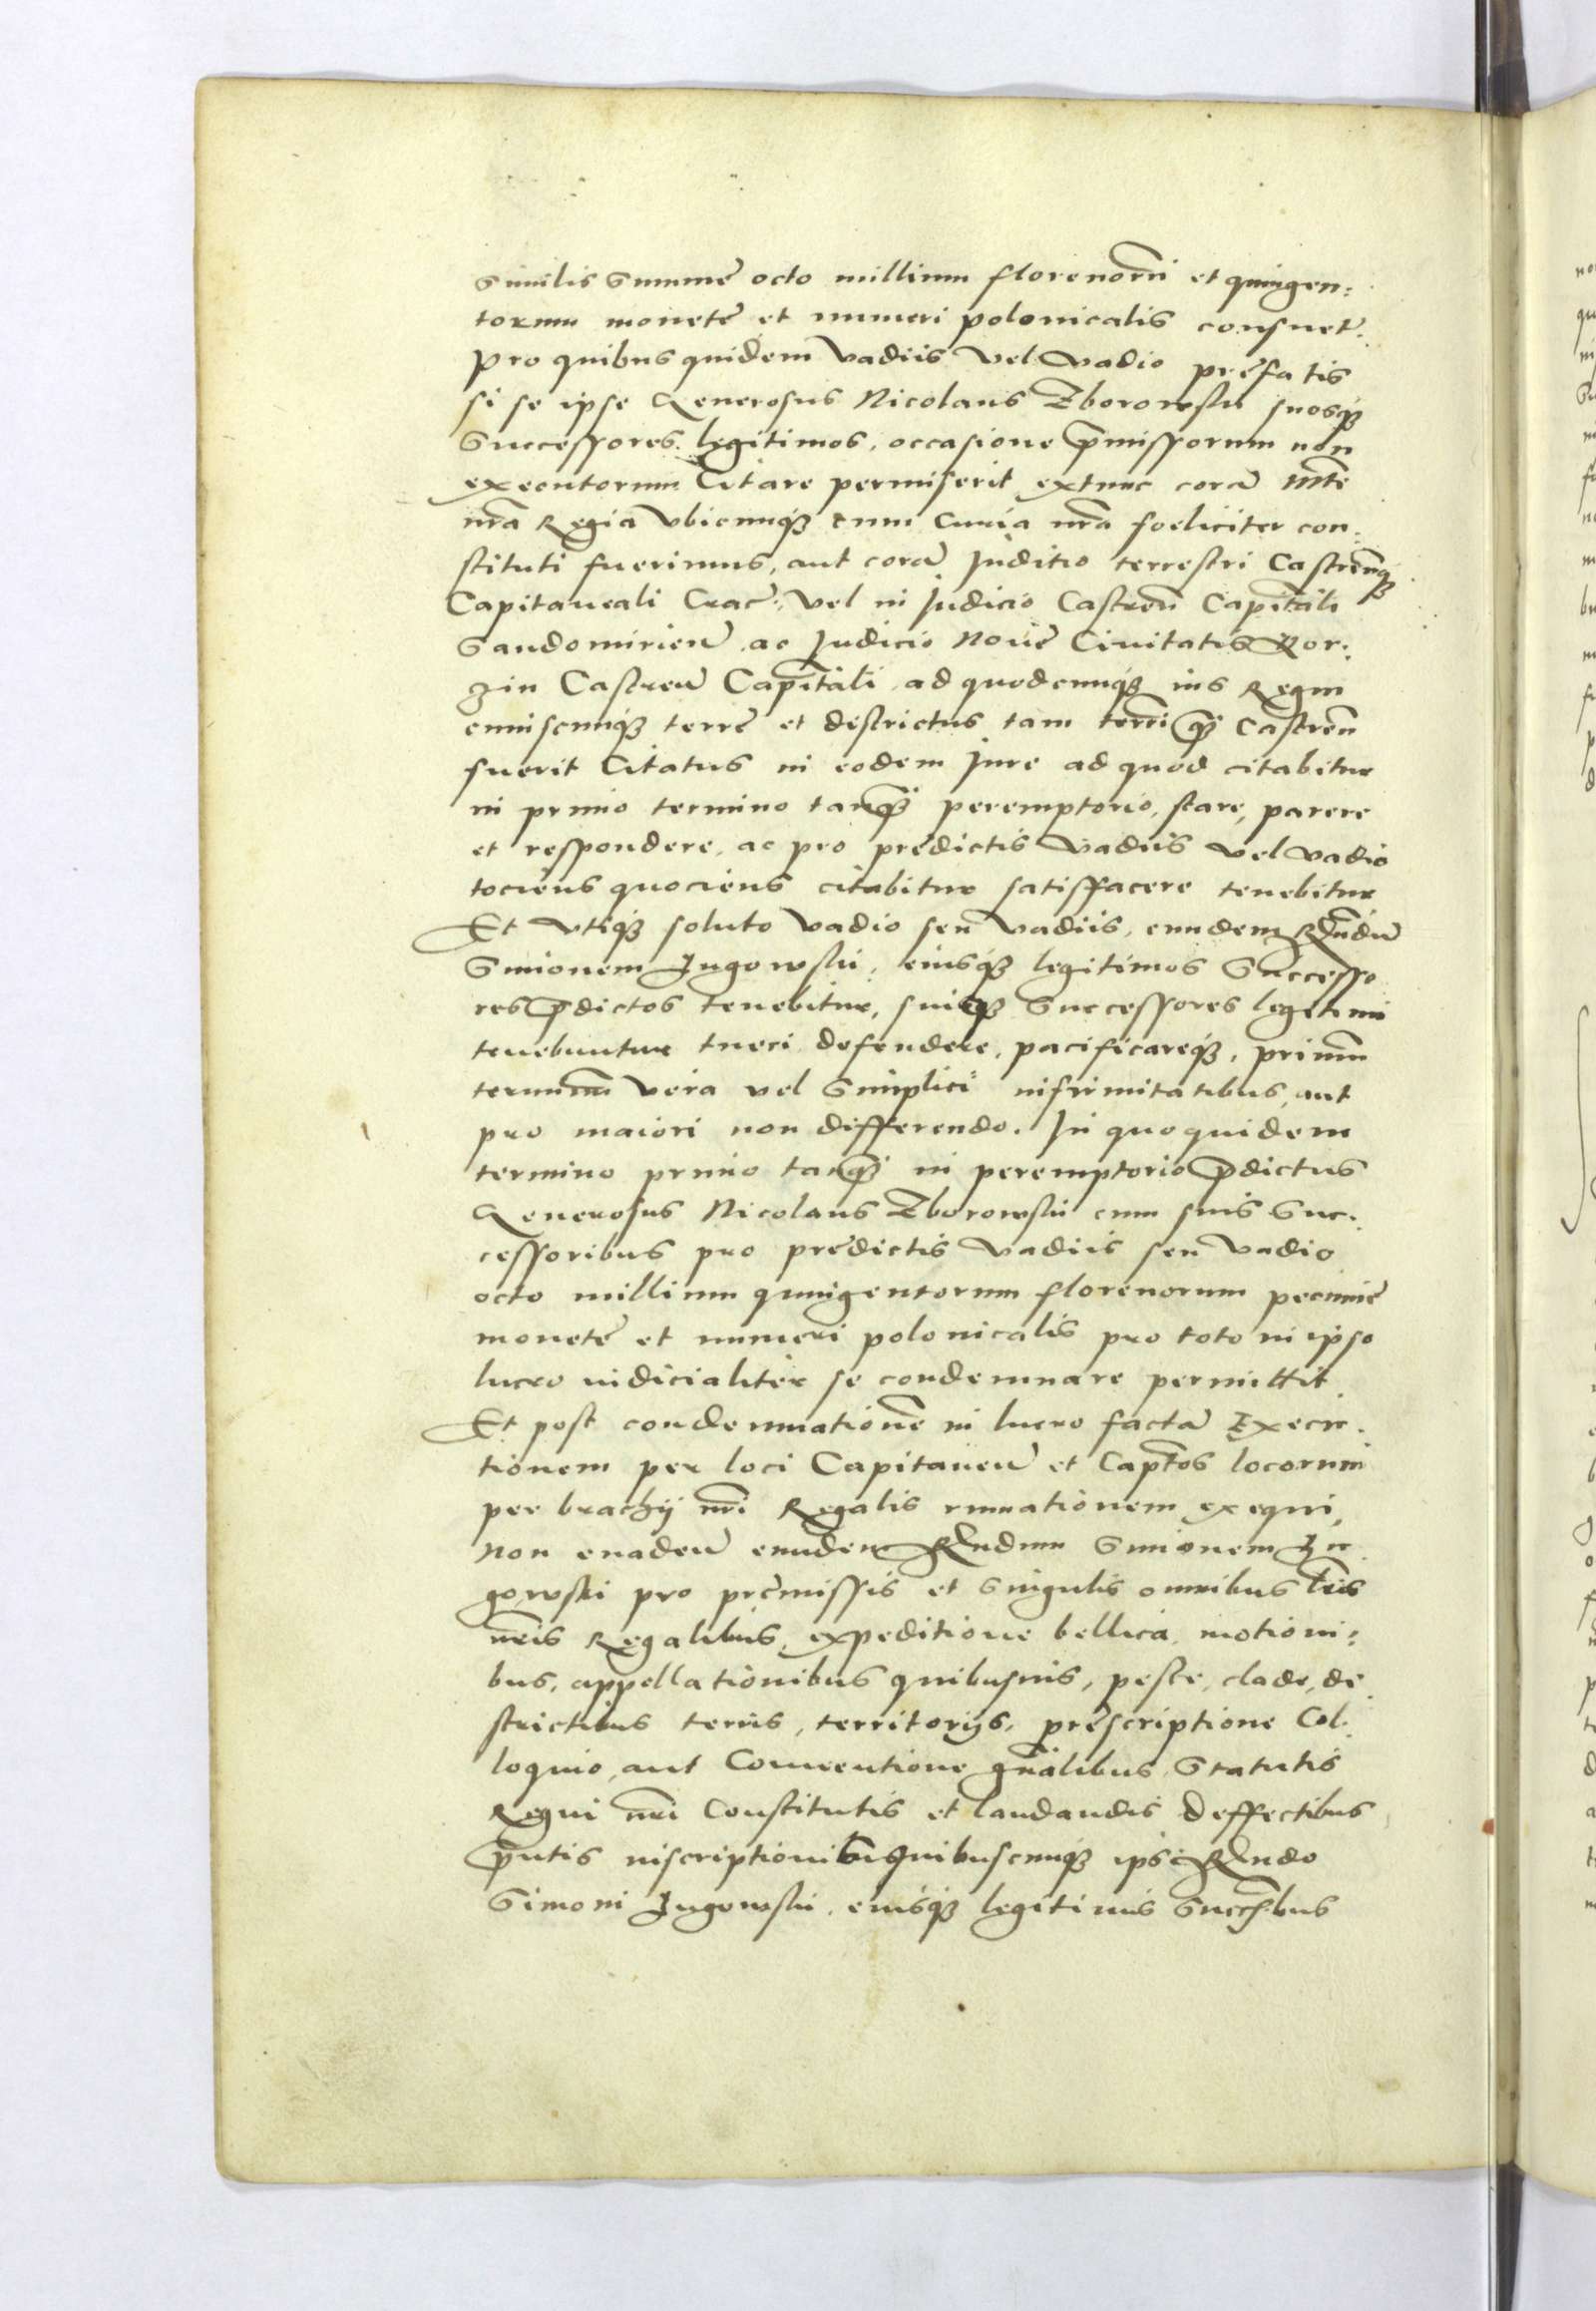 Similis Summe octo millium florenorũ et quingen:
torum monete et numeri polonicalis consuet.
Pro quibus quidem vadiis vel vadio prefatis
si se ipse Generosus Nicolaus Zborowski suosq3
Successores legitimos, occasione p̃missorum non
executorum Citare permiserit extunc corã Mtẽ
nr̃a Regia vbicunq3 cum Curia nr̃a foeliciter con:
stituti fuerimus, aut corã Juditio terrestri Castreñq3
Capitaneali Crac̃. vel in Judicio Castreñ Capitãli
Sandomirieñ ac Judicio Noue Ciuitatis Kor:
zin Castreñ Capitãli ad quodcunq3 ius Regni
cuiuscunq3 terre et destrictus tam terrĩ q̃3 Castreñ
fuerit Citatus in eodem Jure ad quod citabitur
in primo termino tanq̃3 peremptorio, stare, parere
et respondere, ac pro predictis vadiis vel vadio
tociens quociens citabitur satisffacere tenebitur
Et vtiq3 soluto vadio seu vadiis, eundem Rñdũ
Simonem Jugowski, eiusq3 legitimos Successo
res p̃dictos tenebitur, suiq3 Successores legitimi
tenebuntur tueri defendere, pacificareq3, primũ
terminũ vera vel Simplici infirmitatibus, aut
pro maiori non differendo. In quo quidem
termino primo tanq̃3 in peremptorio p̃dictus
Generosus Nicolaus Zborowski cum suis Suc:
cessoribus pro predictis vadiis seu vadio
octo millium quingentorum florenorum pecunie
monete et numeri polonicalis pro toto in ipso
lucro iudicialiter se condemnare permittit
Et post condemnationẽ in lucro factã Execu:
tionem per loci Capitaneũ et Capt̃os locorum
per brachij nr̃i Regalis exequi,
Non euadeñ eundem Rñdum Simonem Ju
gowski pro premissis et Singulis omnibus lr̃is
nr̃is Regalibus, expeditione bellica, motioni:
bus, appellationibus quibusuis, peste, clade, de
strictibus terris, territorijs, prescriptione Col:
loquio, aut Conuentione gñalibus, Statutis
Regni nr̃i Constitutis et laudandis deffectibus
p̃ntis inscriptionibus quibuscunq3 ipsi Rñdo
Simoni Jugowski, eiusq3 legitimis Succr̃ibus